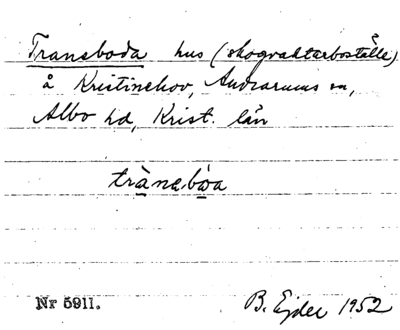 Traneboda hus (skogvaktarboställe)
å Kristinehov, Andrarums sn,
Albo hd, Krist. län
trànebòa
Nr 5911.
B. Ejder 1952